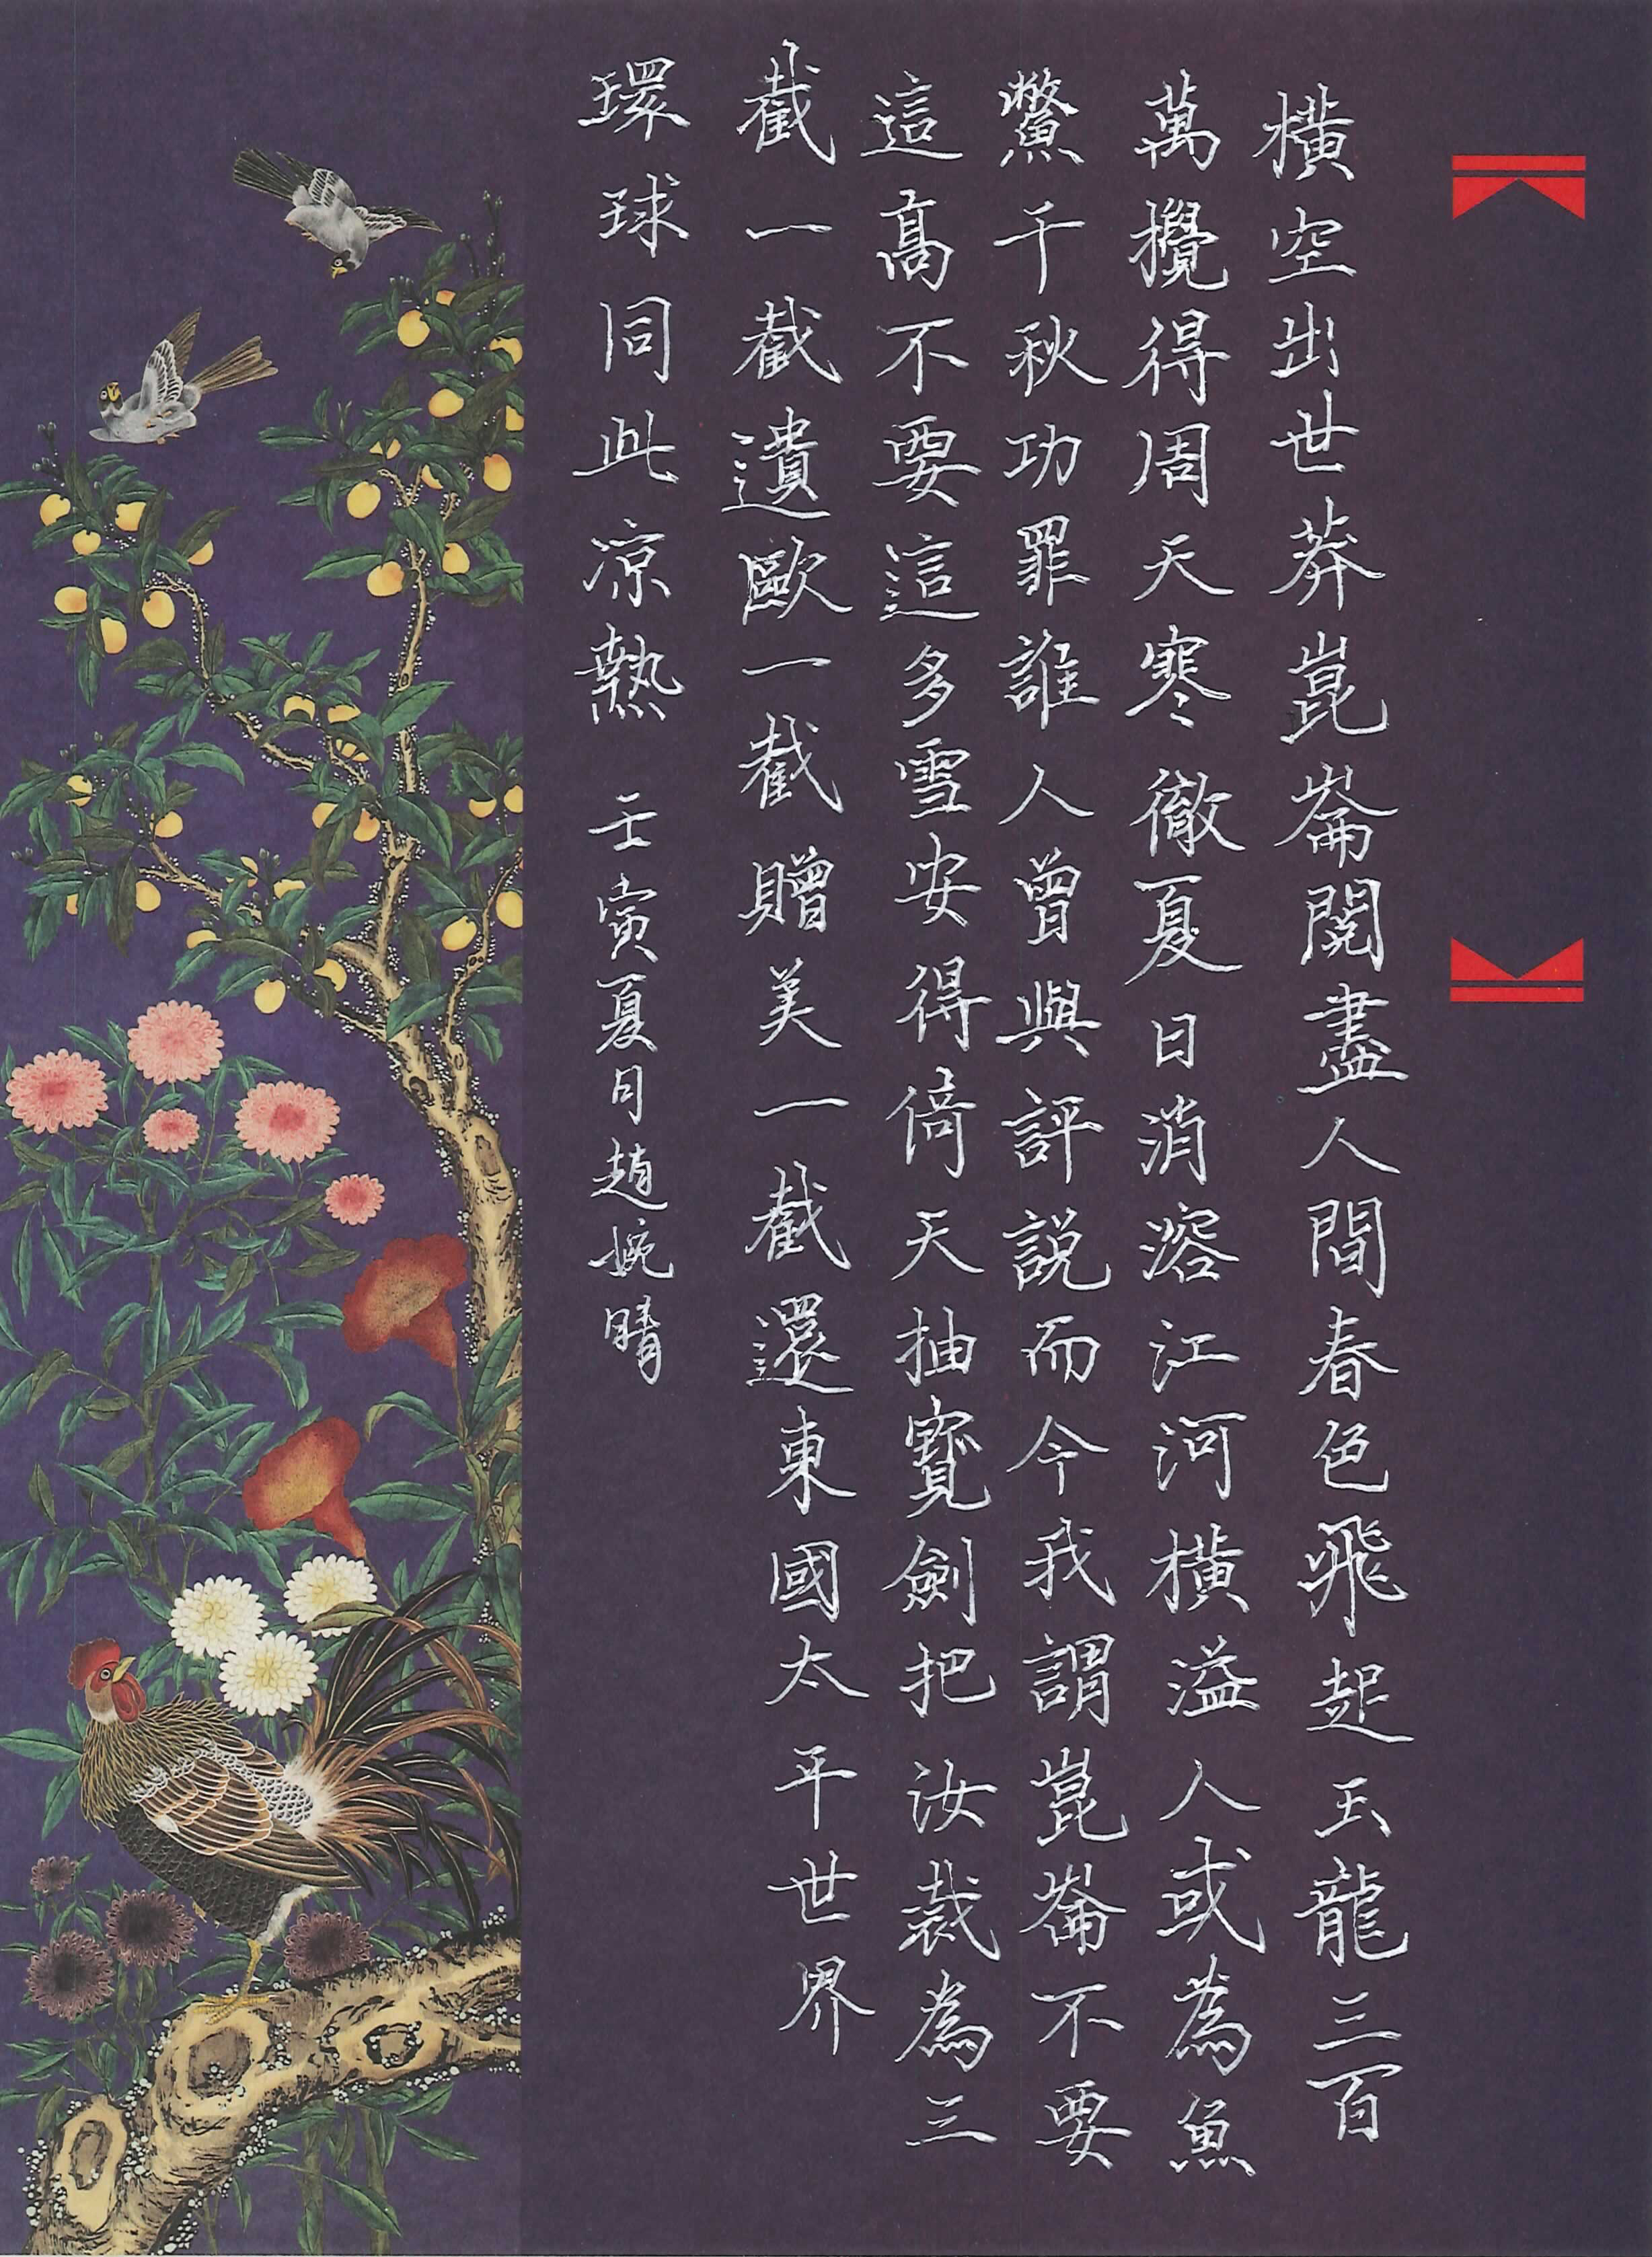 橫空出世莽崑崙閱盡人間春色飛起玉龍三百
萬攪得周天寒徹夏日消溶江河橫溢人或為魚
鱉千秋功罪誰人曾與評說而今我謂崑崙不要
這高不要這多雪安得倚天抽寶劍把汝裁為三
截一截遺歐一截贈美一截還東國太平世界
環球同此涼熱 壬寅夏月趙婉晴